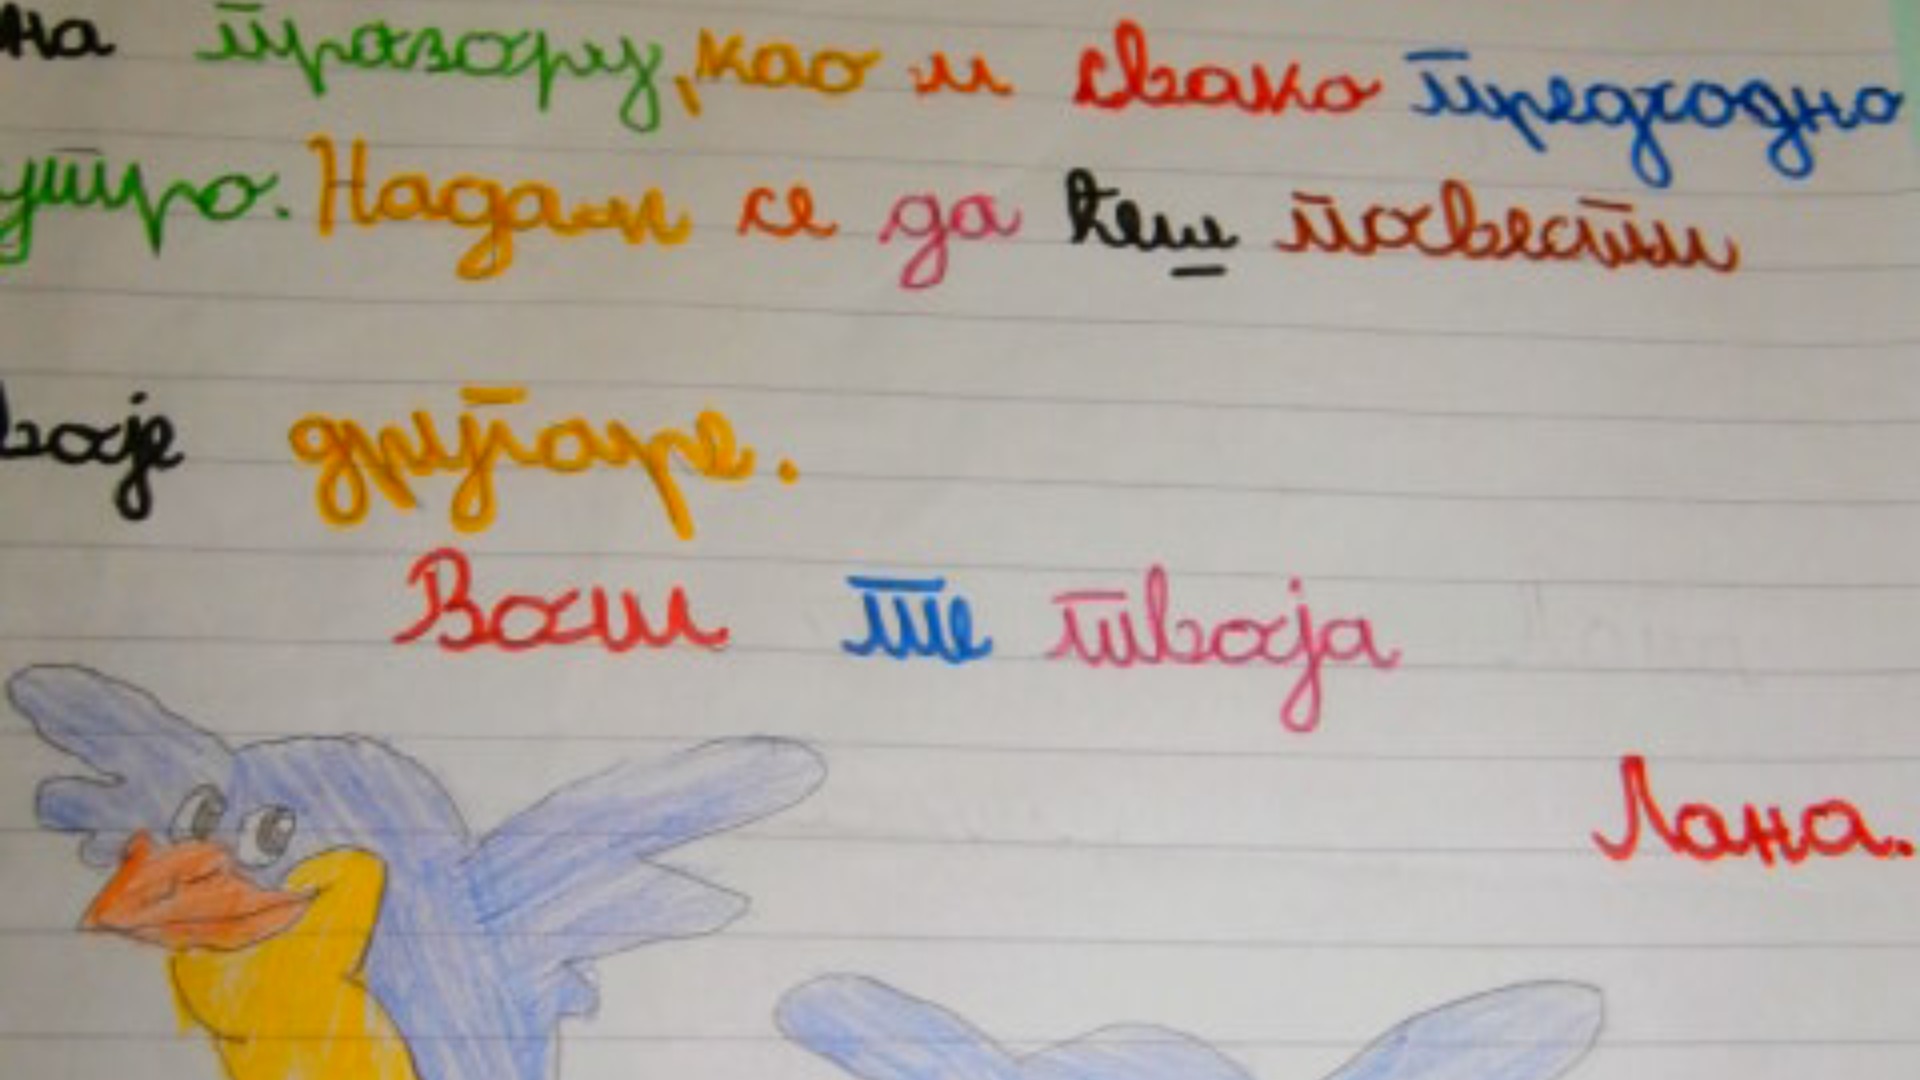 на прозору, као и свако предходно
јутро. Надам се да ћеш повести
своје другаре.
Воли те твоја
Лана.